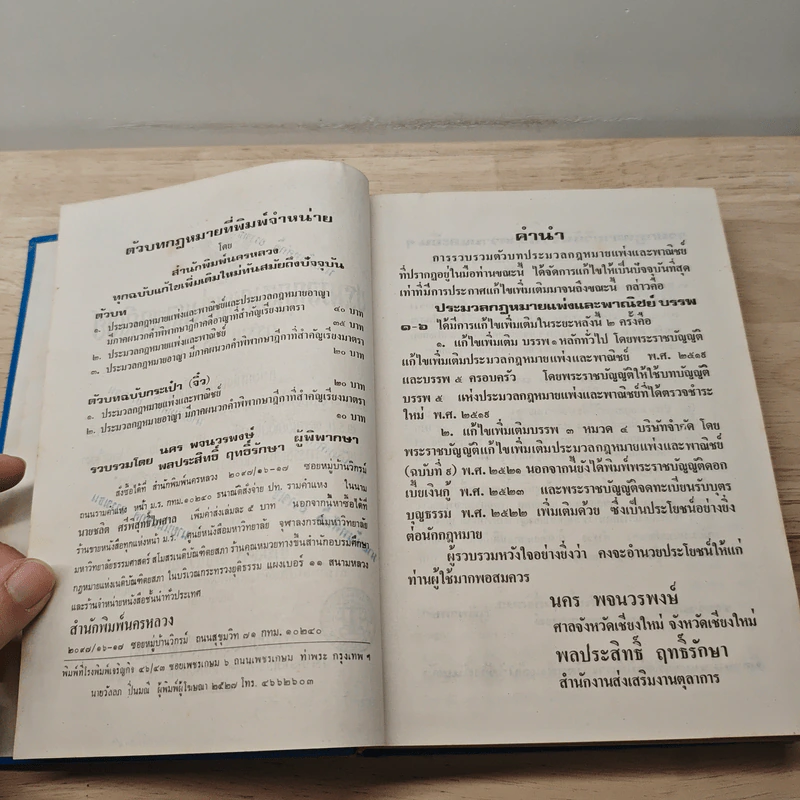 ตัวบทกฎหมายที่พิมพ์จำหน่าย
โดย
สำนักพิมพ์นครหลวง
ทุกฉบับแก้ไขเพิ่มเติมใหม่ทันสมัยถึงปัจจุบัน
ตัวบท
๑. ประมวลกฎหมายแพ่งและพาณิชย์และประมวลกฎหมายอาญา
มีภาคผนวกคำพิพากษาฎีกาคดีอาญาที่สำคัญเรียงมาตรา ๔๐ บาท
๒. ประมวลกฎหมายแพ่งและพาณิชย์ ๓๕ บาท
๓. ประมวลกฎหมายอาญา มีภาคผนวกคำพิพากษาฎีกาที่สำคัญเรียงมาตรา ๒๐ บาท
ตัวบทฉบับกระเป๋า (จิ๋ว)
๑. ประมวลกฎหมายแพ่งและพาณิชย์ ๒๐ บาท
๒. ประมวลกฎหมายอาญา มีภาคผนวกคำพิพากษาฎีกาที่สำคัญเรียงมาตรา ๑๐ บาท
รวบรวมโดย นคร พจนวรพงษ์ ผู้พิพากษา
พลประสิทธิ์ ฤทธิ์รักษา
สั่งซื้อได้ที่ สำนักพิมพ์นครหลวง ๒๐๙๗/๑๖-๑๗ ซอยหมู่บ้านวิกรม์
ถนนรามคำแหง หน้า ม.ร. กทม. ๑๐๒๔๐ ธนาณัติสั่งจ่าย ปท. รามคำแหง ในนาม
นายชลิต ศรีพิสุทธิ์ไพศาล เพิ่มค่าส่งเล่มละ ๕ บาท นอกจากนี้หาซื้อได้ที่
ร้านขายหนังสือทุกแห่งหน้า ม.ร. ศูนย์หนังสือมหาวิทยาลัย จุฬาลงกรณ์มหาวิทยาลัย
มหาวิทยาลัยธรรมศาสตร์ สโมสรเนติบัณฑิตยสภา ร้านคุณหมวยทางขึ้นสำนักอบรมศึกษา
กฎหมายแห่งเนติบัณฑิตยสภา ในบริเวณกระทรวงยุติธรรม แผงเบอร์ ๑๑ สนามหลวง
และร้านจำหน่ายหนังสือชั้นนำทั่วประเทศ
สำนักพิมพ์นครหลวง
๒๐๙๗/๑๖-๑๗ ซอยหมู่บ้านวิกรม์ ถนนสุขุมวิท ๗๑ กทม. ๑๐๒๔๐
พิมพ์ที่โรงพิมพ์เจริญกิจ ๔๖/๔๓ ซอยเพชรเกษม ๖ ถนนเพชรเกษม ท่าพระ กรุงเทพ ฯ
นายวัลลภ ปิ่นมณี ผู้พิมพ์ผู้โฆษณา ๒๕๒๗ โทร. ๔๖๖๒๖๐๓
คำนำ
การรวบรวมตัวบทประมวลกฎหมายแพ่งและพาณิชย์
ที่ปรากฏอยู่ในมือท่านขณะนี้ ได้จัดการแก้ไขให้เป็นปัจจุบันที่สุด
เท่าที่มีการประกาศแก้ไขเพิ่มเติมมาจนถึงขณะนี้ กล่าวคือ
ประมวลกฎหมายแพ่งและพาณิชย์ บรรพ
๑-๖ ได้มีการแก้ไขเพิ่มเติมในระยะหลังนี้ ๒ ครั้งคือ
๑. แก้ไขเพิ่มเติม บรรพ ๑ หลักทั่วไป โดยพระราชบัญญัติ
แก้ไขเพิ่มเติมประมวลกฎหมายแพ่งและพาณิชย์ พ.ศ. ๒๕๑๙
และบรรพ ๕ ครอบครัว โดยพระราชบัญญัติให้ใช้บทบัญญัติ
บรรพ ๕ แห่งประมวลกฎหมายแพ่งและพาณิชย์ที่ได้ตรวจชำระ
ใหม่ พ.ศ. ๒๕๑๙
๒. แก้ไขเพิ่มเติมบรรพ ๓ หมวด ๔ บริษัทจำกัด โดย
พระราชบัญญัติแก้ไขเพิ่มเติมประมวลกฎหมายแพ่งและพาณิชย์
(ฉบับที่ ๕) พ.ศ. ๒๕๒๑ นอกจากนี้ยังได้พิมพ์พระราชบัญญัติดอก
เบี้ยเงินกู้ พ.ศ. ๒๕๒๓ และพระราชบัญญัติจดทะเบียนรับบุตร
บุญธรรม พ.ศ. ๒๕๒๒ เพิ่มเติมด้วย ซึ่งเป็นประโยชน์อย่างยิ่ง
ต่อนักกฎหมาย
ผู้รวบรวมหวังใจอย่างยิ่งว่า คงจะอำนวยประโยชน์ให้แก่
ท่านผู้ใช้มากพอสมควร
นคร พจนวรพงษ์
ศาลจังหวัดเชียงใหม่ จังหวัดเชียงใหม่
พลประสิทธิ์ ฤทธิ์รักษา
สำนักงานส่งเสริมงานตุลาการ